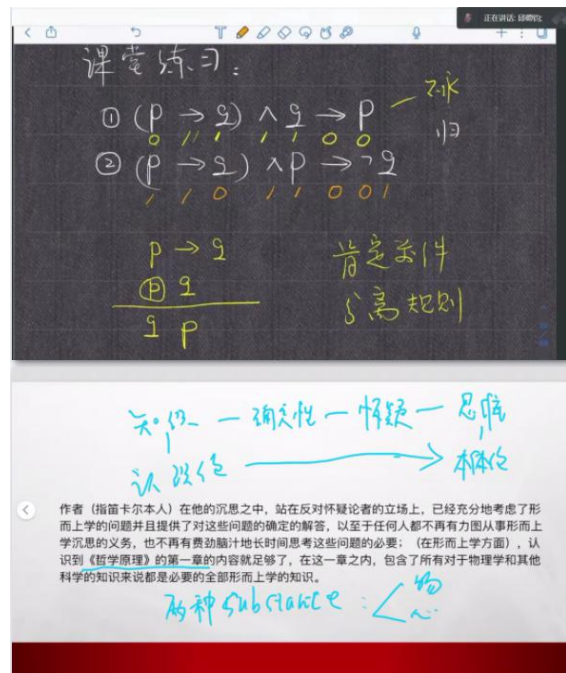 正在讲话:
课堂练习:
① (p → q) ∧ q → p
0 1 1 1 1 0 0
归
② (p → q) ∧ p → ¬q
1 1 0 1 1 0 0 1
p → q
ⓟ q
q p
肯定条件
分离规则
知识 — 确定性 — 怀疑 — 思维
认识论 → 本体论
作者(指笛卡尔本人)在他的沉思之中,站在反对怀疑论者的立场上,已经充分地考虑了形
而上学的问题并且提供了对这些问题的确定的解答,以至于任何人都不再有力图从事形而上
学沉思的义务,也不再有费劲脑汁地长时间思考这些问题的必要;(在形而上学方面),认
识到《哲学原理》的第一章的内容就足够了,在这一章之内,包含了所有对于物理学和其他
科学的知识来说都是必要的全部形而上学的知识。
两种substance: 物
心